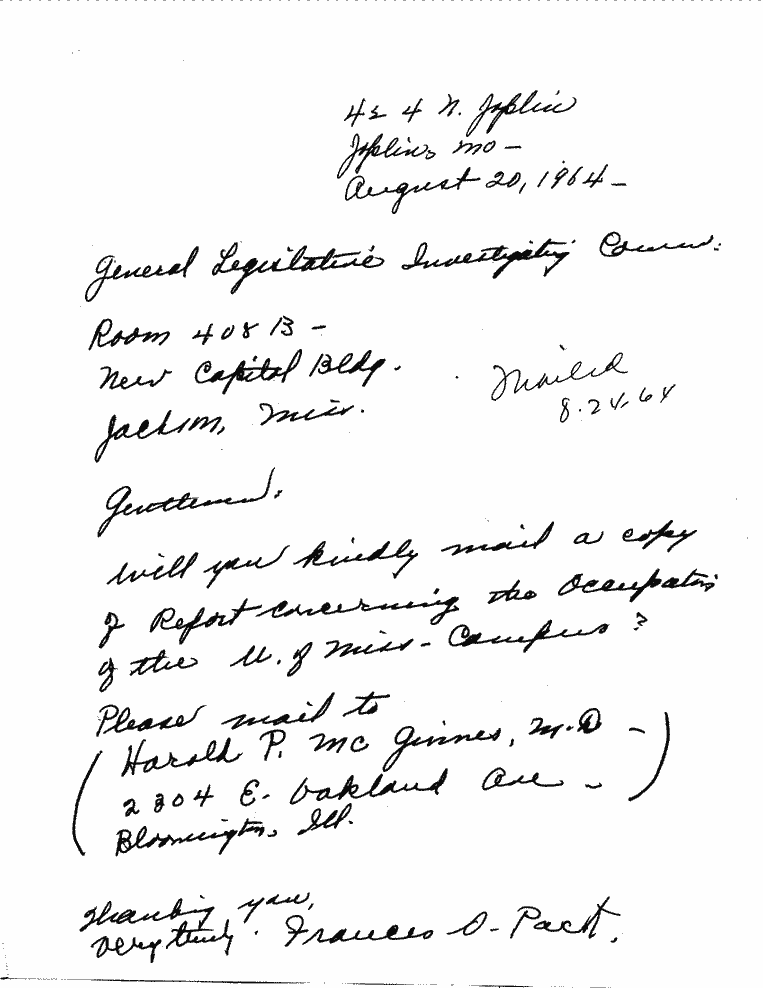 424 N. Joplin
Joplin, Mo –
August 20, 1964 –
General Legislative Investigating Comm.
Room 408 B –
New Capitol Bldg.
Jackson, Miss.
Mailed
8.24.64
Gentlemen:
Will you kindly mail a copy
of Report concerning the Occupation
of the U. of Miss – Campus?
Please mail to
(Harold P. Mc Ginnes, M.D –
2304 E. Oakland Ave –)
Bloomington, Ill.
Thanking you,
very truly. Frances O –